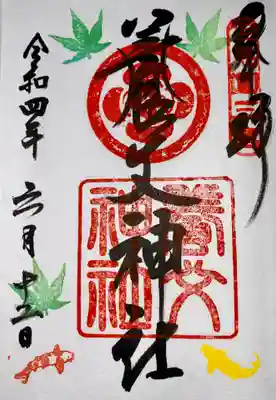 奉拝
養父神社
養父
神社
令和四年
六月十二日